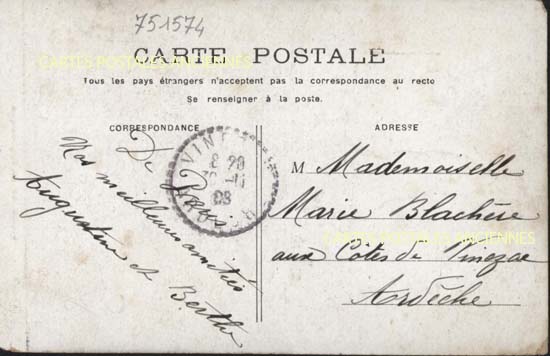 751574
CARTE POSTALE
CARTES POSTALES ANCIENNES
Tous les pays étrangers n'acceptent pas la correspondance au recto
Se renseigner à la poste.
CORRESPONDANCE
De
Nos meilleures amitiés
Augustine et Berthe
VINEZ
8 20
08
ADRESSE
M Mademoiselle
Marie Blachère
CARTES POSTALES ANCIENNES
aux Côtes de Vinezac
Ardèche